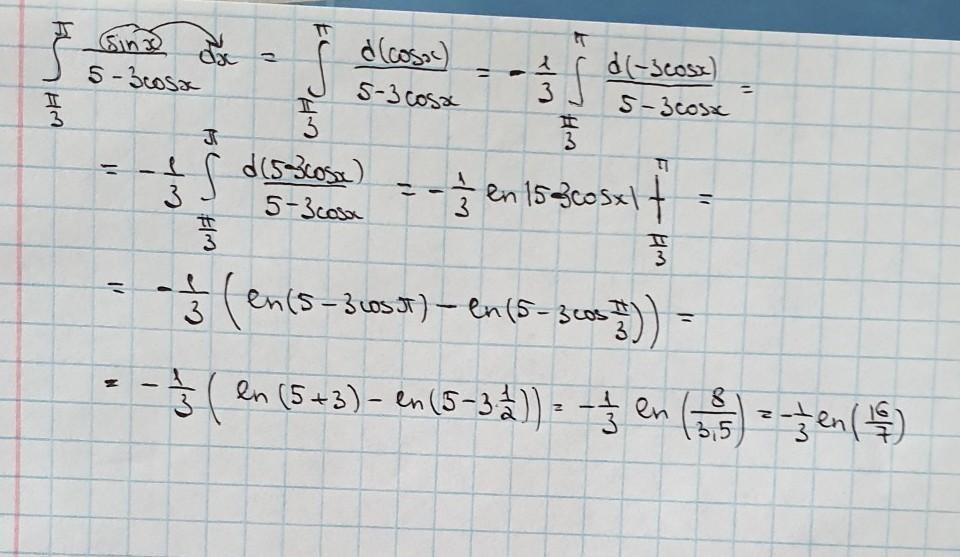 ∫_{π/3}^{π} sinx/(5-3cosx) dx = ∫_{π/3}^{π} d(cosx)/(5-3cosx) = -1/3 ∫_{π/3}^{π} d(-3cosx)/(5-3cosx) =
= -1/3 ∫_{π/3}^{π} d(5-3cosx)/(5-3cosx) = -1/3 ln|5-3cosx| |_{π/3}^{π} =
= -1/3 (ln(5-3cosπ) - ln(5-3cos π/3)) =
= -1/3 (ln(5+3) - ln(5-3·1/2)) = -1/3 ln(8/3,5) = -1/3 ln(16/7)